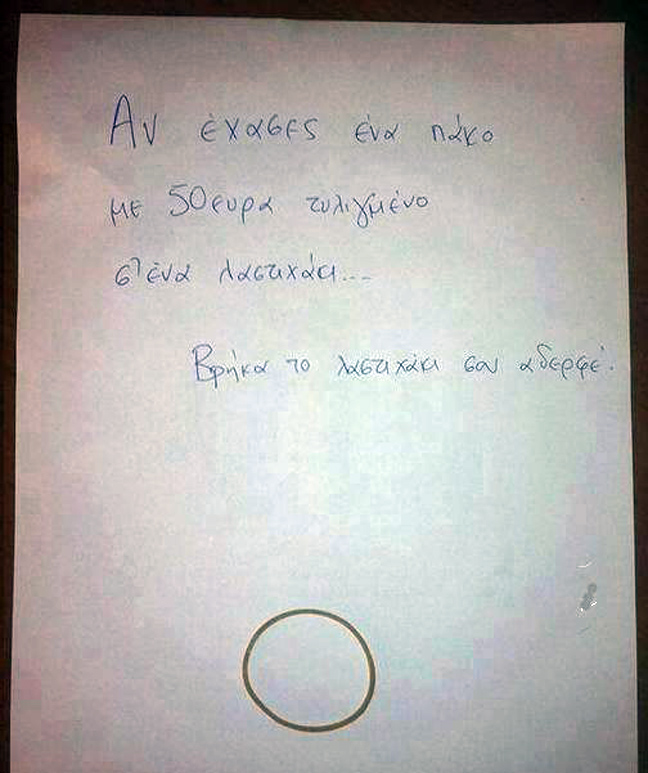 Αν έχασες ένα πάκο
με 50ευρα τυλιγμένο
σ' ένα λαστιχάκι...
Βρήκα το λαστιχάκι σου αδερφέ.